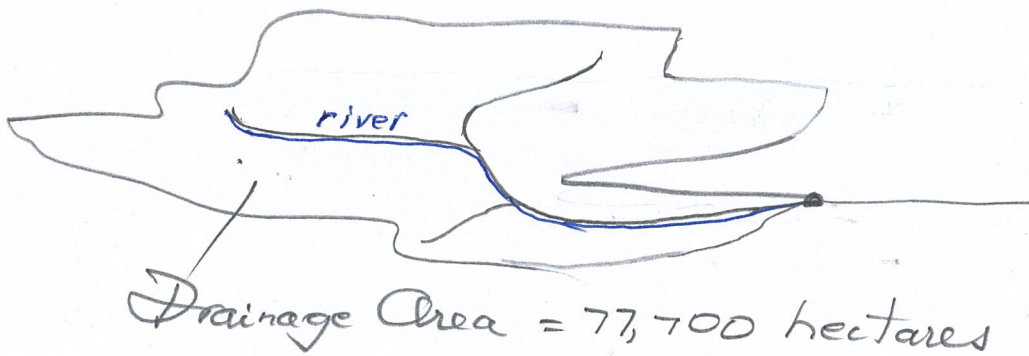 river
Drainage Area = 77,700 hectares